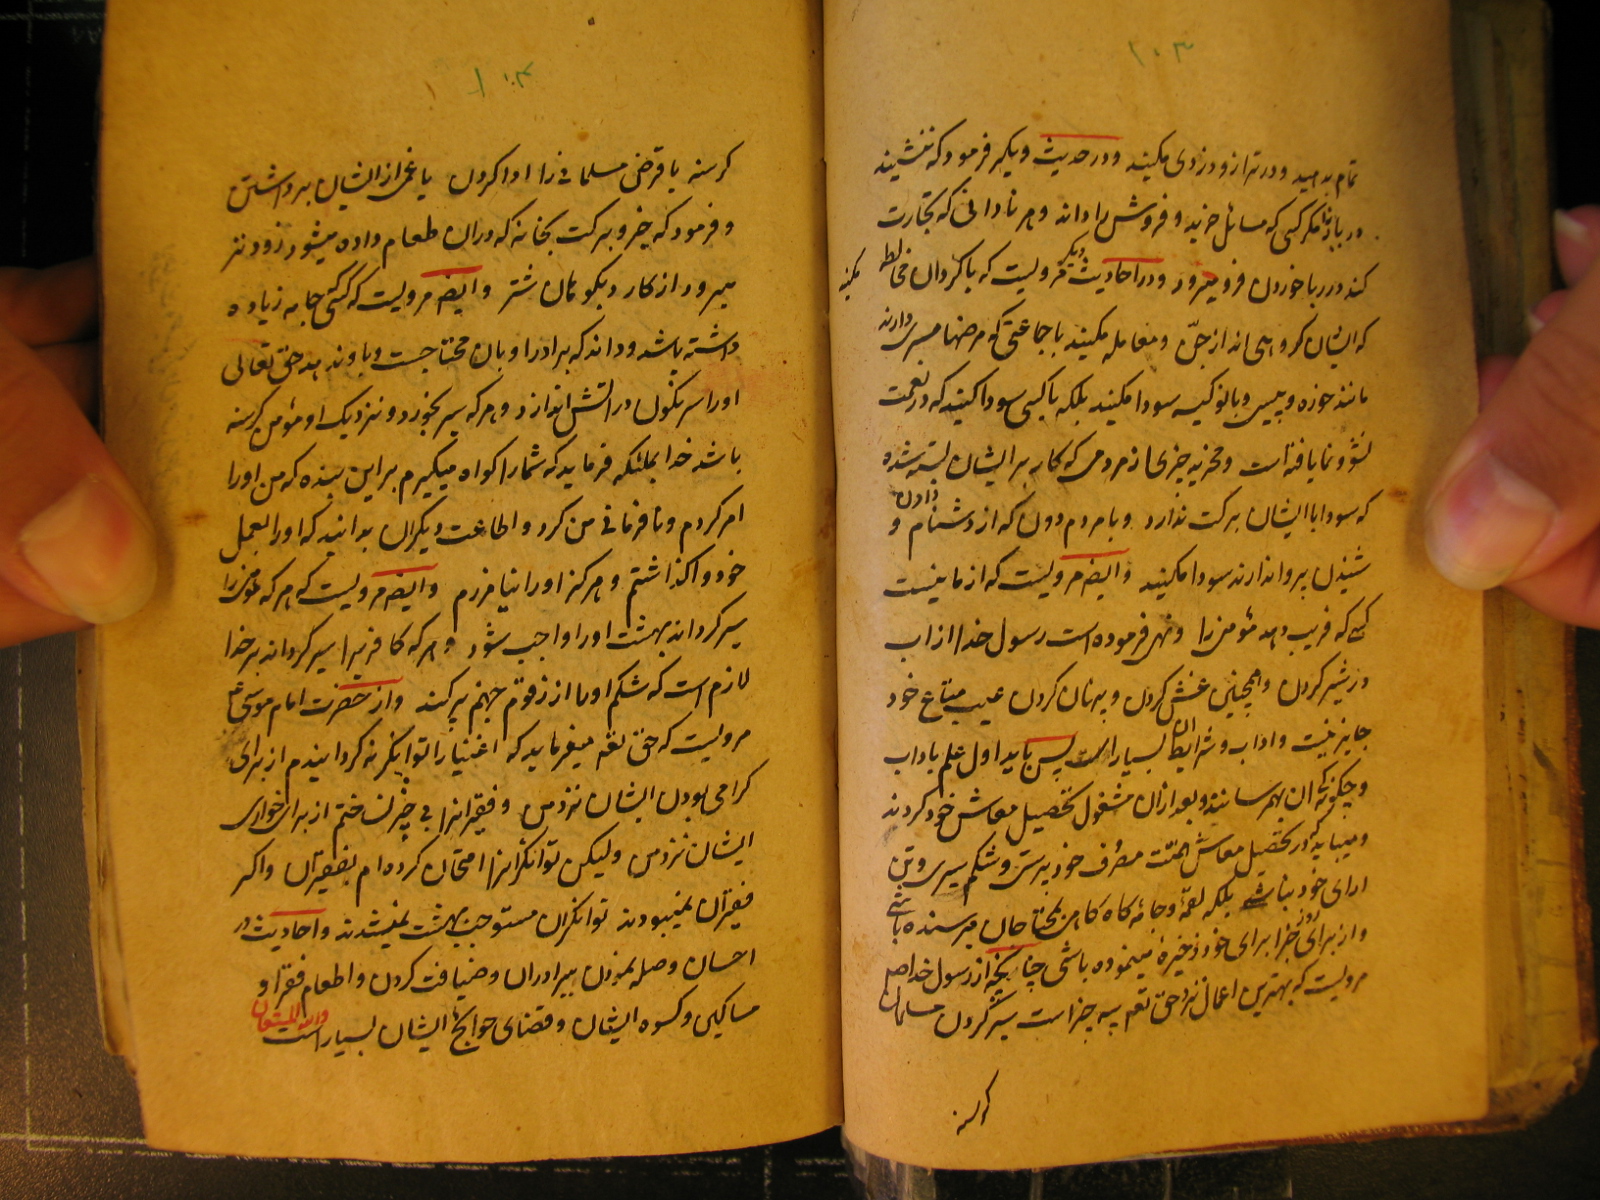 ۱۰۳
تمام بدهید و در ترازو دزدی مکنید و در حدیث دیگر فرمود که ننشیند
در بازار مگر کسی که مسائل خرید و فروش را داند و هر نادانی که تجارت
کند در ربا خوردن فرو میرود و در احادیث دیگر مرویست که با کردان مخالطه مکنید
که ایشان کروهی اند از جنّ و معامله مکنید با جماعتی که مرضها مسری دارند
مانند خوره و پیسی و با نوکیسه سودا مکنید بلکه با کسی سودا کنید که در نعمت
نشو و نما یافته است و مخرید چیزی از مردمی که کار بر ایشان بسته شده
که سودا با ایشان برکت ندارد و با مردم دون که از دشنام دادن و
شنیدن پروا ندارند سودا مکنید و ایضا مرویست که از ما نیست
کسی که فریب دهد مؤمن را و نهی فرموده است رسول خدا از آب
در شیر کردن و همچنین غش کردن و پنهان کردن عیب متاع خود
جایز نیست و اداب و شرایط آن بسیار است پس باید اول علم باداب
و چگونگی آن بهم رسانند و بعد از آن مشغول تحصیل معاش خود گردند
و میباید که در تحصیل معاش همّت مصرف خود پرستی و شکم سیری و تن
ارای خود نباشی بلکه لقمه و جامه گاه گاه من بمحتاجان میرسنده باشی
و از برای روز جزا برای خود ذخیره مینموده باشی چنانچه از رسول خدا صلعم
مرویست که بهترین اعمال نزد حق تعم سه چیز است سیر کردن مسلمان
کرسنه
۱۰۴
کرسنه یا قرض مسلمانی را ادا کردن یا غمی از ایشان برداشتن
و فرمود که خیر و برکت بخانه که در آن طعام داده میشود زودتر
میرود از کارد بکوهان شتر و ایضا مرویست که کسی جامه زیاده
داشته باشد و داند که برادر او بان محتاجست و باو ندهد حق تعالی
او را سرنگون در اتش اندازد و هر که سیر بخورد و نزدیک او مؤمن کرسنه
باشد خدا بملئکه فرماید که شما را کواه میکیرم بر این بنده که من او را
امر کردم و نافرمانی من کرد و اطاعت دیگران بدانید که او را بعمل
خود واگذاشتم و هرکز او را نیامرزم و ایضا مرویست که هر که مؤمن را
سیر گرداند بهشت او را واجب شود و هر که کافری را سیر گرداند بر خدا
لازم است که شکم او را از زقوم جهنم پر کند و از حضرت امام موسی ع
مرویست که حق تعم میفرماید که اغنیا را توانگر نه گردانیدم از برای
گرامی بودن ایشان نزد من و فقیرانرا بی چیز نساختم از برای خواری
ایشان نزد من و لیکن توانگرانرا امتحان کرده ام بفقیران و اگر
فقیران نمیبودند توانگران مستوجب بهشت نمیشدند و احادیث در
احسان و صله نمودن ببرادران و ضیافت کردن و اطعام فقرا و
مساکین و کسوه ایشان و قضای حوایج ایشان بسیار است والله المستعان